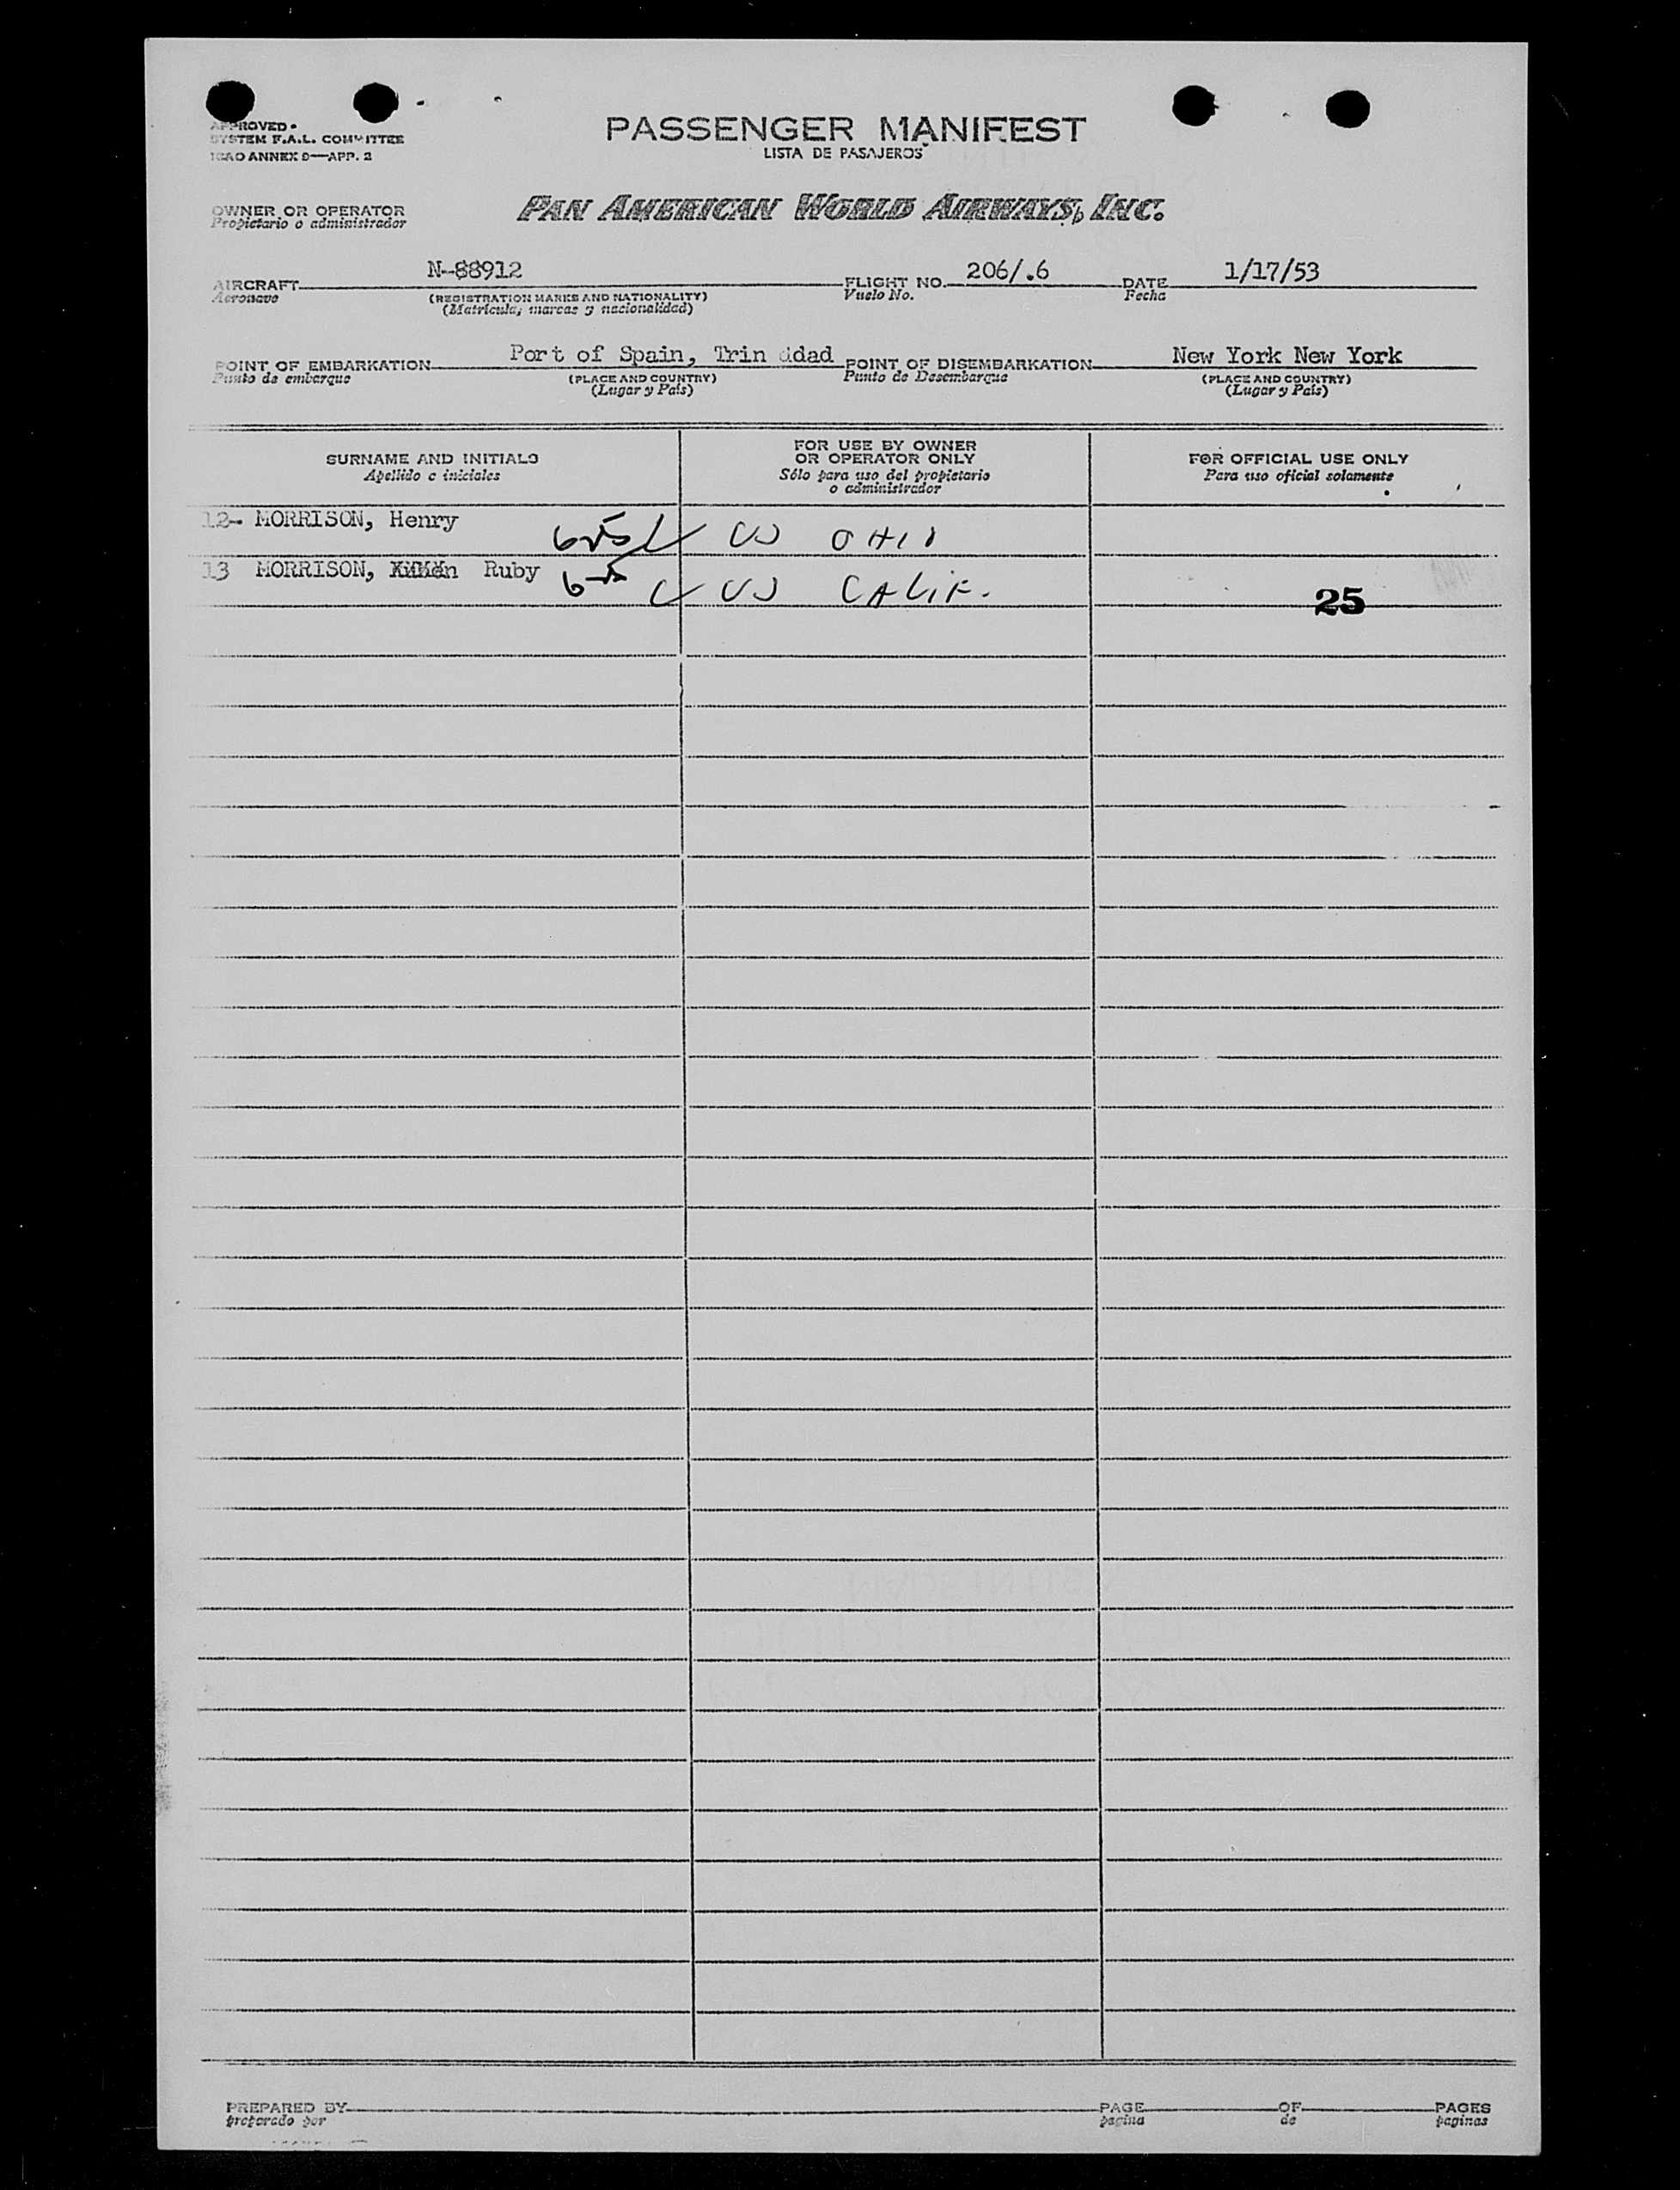 APPROVED
SYSTEM F.A.L. COMMITTEE
ICAO ANNEX 9—APP. 2
PASSENGER MANIFEST
LISTA DE PASAJEROS
OWNER OR OPERATOR
Propietario o administrador
PAN AMERICAN WORLD AIRWAYS, INC.
AIRCRAFT N-88912 FLIGHT NO. 206/.6 DATE 1/17/53
Aeronave (REGISTRATION MARKS AND NATIONALITY) Vuelo No. Fecha
(Matrícula, marcas y nacionalidad)
POINT OF EMBARKATION Port of Spain, Trin ddad POINT OF DISEMBARKATION New York New York
Punto de embarque (PLACE AND COUNTRY) Punto de Desembarque (PLACE AND COUNTRY)
(Lugar y País) (Lugar y País)
SURNAME AND INITIALS FOR USE BY OWNER OR OPERATOR ONLY FOR OFFICIAL USE ONLY
Apellido e iniciales Sólo para uso del propietario o administrador Para uso oficial solamente
12- MORRISON, Henry US OHIO
13 MORRISON, Ruby US CALIF.
25
PREPARED BY PAGE OF PAGES
preparado por pagina de paginas